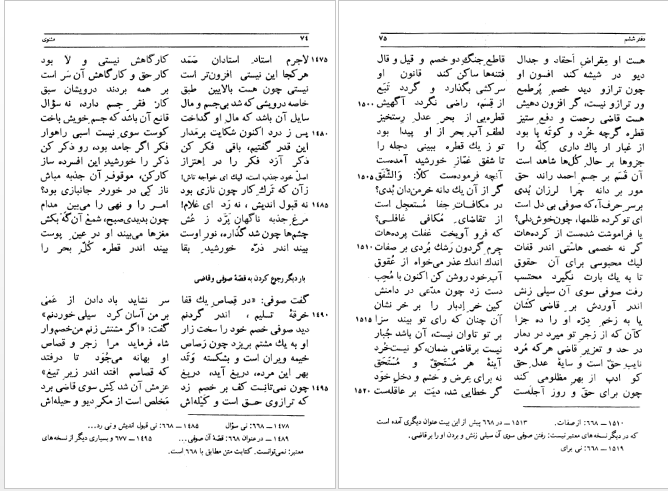 ۷۴ مثنوی
۱۴۷۵ لاجرم استاد استادان صَمَد کارگاهش نیستی و لا بود
هرکجا این نیستی افزون‌تر است کار حق و کارگاهش آن سَر است
نیستی چون هست بالایین طبق بر همه بردند درویشان سبق
خاصه درویشی که شد بی جسم و مال کار فقر جسم دارد، نه سؤال
سایل آن باشد که مال او گداخت قانع آن باشد که جسم خویش باخت
۱۴۸۰ پس ز درد اکنون شکایت برمَدار کوست سوی نیست اسبی راهوار
این قدر گفتیم، باقی فکر کن فکر اگر جامد بود، رو ذکر کن
ذکر آرد فکر را در اِهتزاز ذکر را خورشید این افسرده ساز
اصل خود جذب است، لیك ای خواجه تاش! کارکن، موقوف آن جذبه مباش
زآن که ترك کار چون نازی بود ناز کی در خوردِ جانبازی بود؟
۱۴۸۵ نه قبول اندیش، نه رَد ای غلام! امر را و نهی را می‌بین مدام
مرغ جذبه ناگهان پَرَّد ز عُش چون بدیدی صبح، شمع آن گه بکش
چشم‌ها چون شد گذاره، نور اوست مغزها می‌بیند او در عین پوست
بیند اندر ذرّه خورشید بقا بیند اندر قطره کُلّ بحر را
بار دیگر رجوع کردن به قصّهٔ صوفی و قاضی
گفت صوفی: «در قِصاص یك قفا سر نشاید باد دادن از عَمیٰ
۱۴۹۰ خرقهٔ تسلیم، اندر گردنم بر من آسان کرد سیلی خوردنم»
دید صوفی خصم خود را سخت زار گفت: «اگر مشتش زنم من خصم‌وار
او به یك مشتم بریزد چون رَصاص شاه فرماید مرا زجر و قصاص
خیمه ویران است و بشکسته وَتَد او بهانه می‌جُوَد تا درفتد
بهر این مرده، دریغ آید، دریغ که قصاصم افتد اندر زیر تیغ»
۱۴۹۵ چون نمی‌تانِست کف بر خصم زد عزمش آن شد کِش سوی قاضی برد
که ترازوی حق است و کَیله‌اش مَخلص است از مکر دیو و حیله‌اش
۱۴۷۸ ــ ۶۶۸: نی سؤال ۱۴۸۵ ــ ۶۶۸: نی قبول اندیش و نی رد...
۱۴۸۹ ــ در عنوان: ۶۶۸: قصّهٔ آن صوفی... ۱۴۹۵ ــ ۶۷۷ و بسیاری دیگر از نسخه‌های
معتبر: نمی‌توانست. کتابت متن مطابق با ۶۶۸ است.
دفتر ششم ۷۵
هست او مِقراضِ اَحقاد و جدال قاطع جنگِ دو خصم و قیل و قال
دیو در شیشه کند افسون او فتنه‌ها ساکن کند قانون او
چون ترازو دید خصم پُرطمع سرکشی بگذارد و گردد تَبَع
۱۵۰۰ ور ترازو نیست، گر افزون دهیش از قِسَم، راضی نگردد آگهیش
هست قاضی رحمت و دفعِ ستیز قطره‌یی از بحر عدل رستخیز
قطره گرچه خُرد و کوته پا بود لطف آب بحر از او پیدا بود
از غبار ار پاك داری کِلّه را تو ز یك قطره ببینی دجله را
جزوها بر حال کُل‌ها شاهد است تا شفق غمّاز خورشید آمدست
۱۵۰۵ آن قَسَم بر جسم احمد راند حق آنچه فرمودست کَلّا، وَالشَّفَق
مور بر دانه چرا لرزان بُدی گر از آن یك دانه خرمن‌دان بُدی؟
برسرِ حرف‌آ، که صوفی بی دل است در مکافات جفا مُستعجِل است
ای تو کرده ظلم‌ها، چون خوش‌دلی؟ از تقاضای مُکافی غافلی؟
یا فراموشت شدست از کرده‌هات که فرو آویخت غفلت پرده‌هات
۱۵۱۰ گر نه خصمی هاستی اندر قفات جِرم گردون رَشك بُردی بر صفات
لیك محبوسی برای آن حقوق اندك اندك عذر می‌خواه از عُقوق
تا به یك بارت نگیرد محتسب آب خود روشن کن اکنون با مُحِب
رفت صوفی سوی آن سیلی زنش دست زد چون مدّعی در دامنش
اندر آوردش برِ قاضی کشان کین خر اِدبار را بر خر نشان
۱۵۱۵ یا به زخم دِرّه او را ده جزا آن چنان که رای تو بیند سزا
کآن که از زجر تو میرد در دمار بر تو تاوان نیست، آن باشد جُبار
در حد و تعزیرِ قاضی هر که مُرد نیست بر قاضی ضَمان، کو نیست خُرد
نایب حقّ است و سایهٔ عدل حق آینهٔ هر مُستَحِقّ و مُستَحَق
کو ادب از بهر مظلومی کند نه برای عِرض و خشم و دخلِ خود
۱۵۲۰ چون برای حق و روز آجله‌ست گر خطایی شد، دِیَت بر عاقله‌ست
۱۵۱۰ ــ ۶۶۸: از صفات. ۱۵۱۳ ــ در ۶۶۸ پیش از این بیت عنوان دیگری آمده است
که در دیگر نسخه‌های معتبر نیست: رفتن صوفی سوی آن سیلی زنش و بردن او را بر قاضی.
۱۵۱۹ ــ ۶۶۸: نی برای